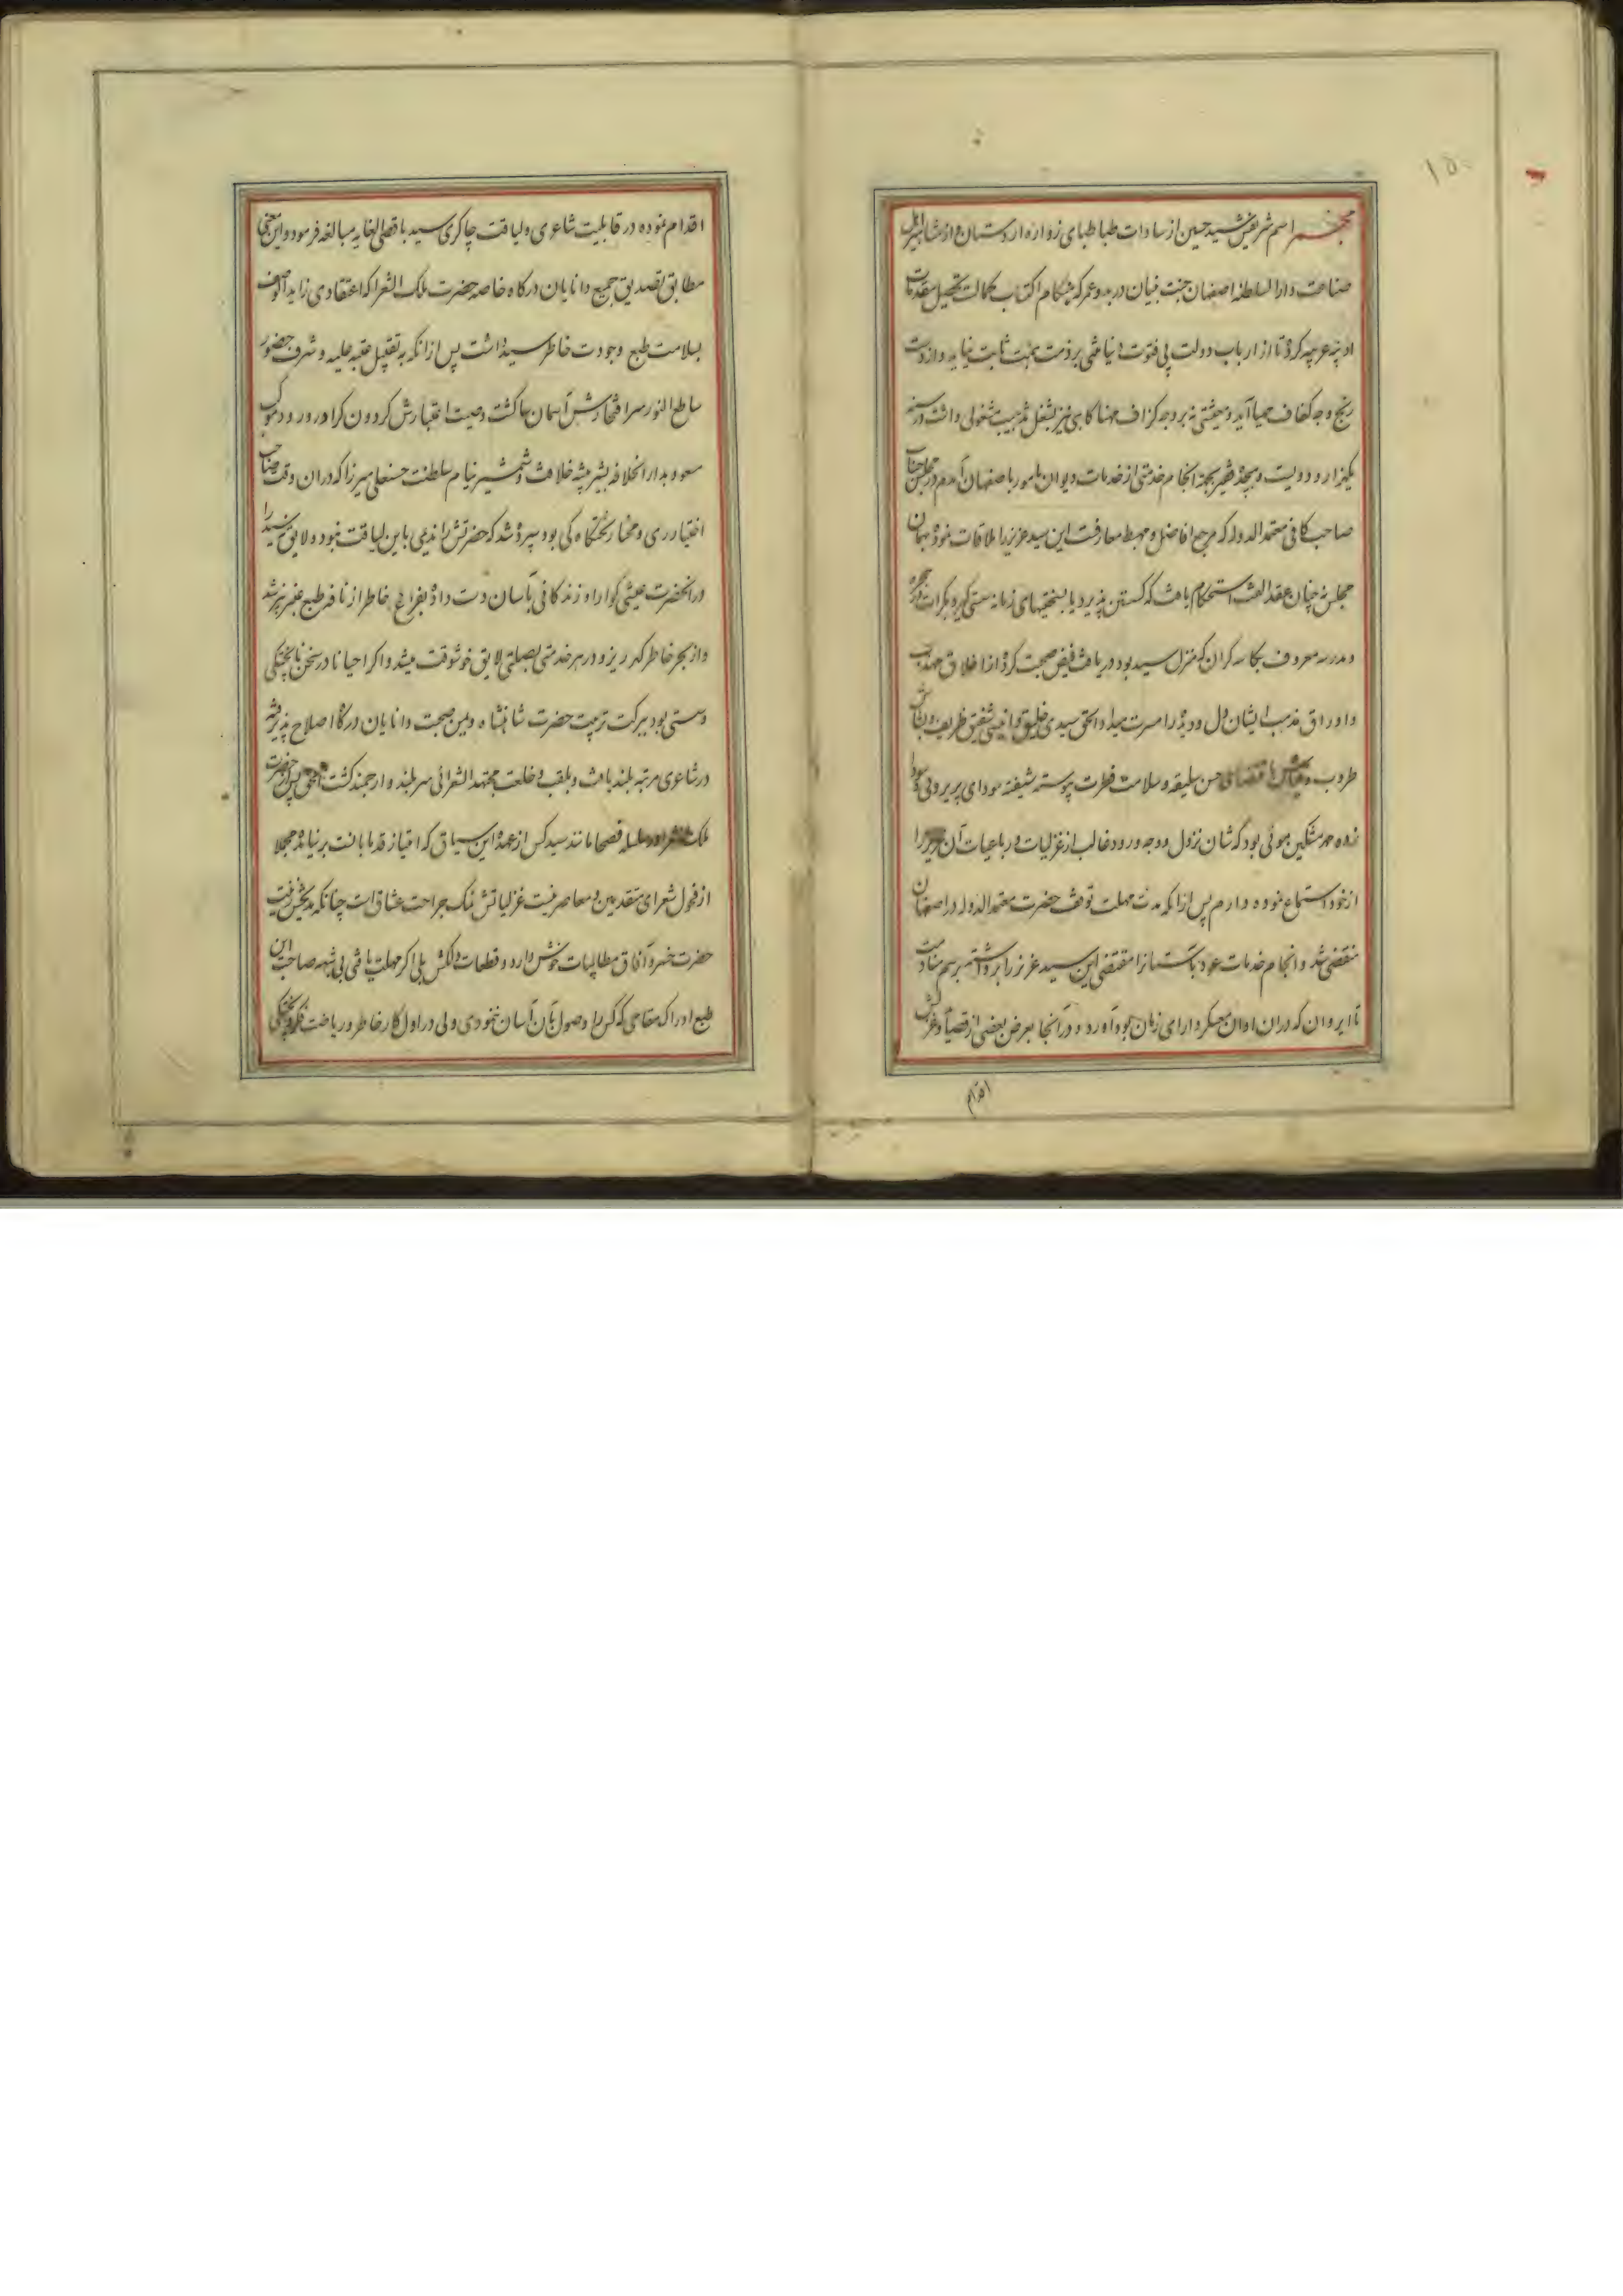 ۱۵۰
مجمر اسم شریفش سید حسین از سادات طباطبای زواره اردستان و از مشاهیر اهل
صناعت دار السلطنه اصفهان جنت بنیان در بدو عمر که هنگام اکتساب کمالات تحصیل مقدمات
ادبیه عربیه کرده تا از ارباب دولت بی فتوت دنیا منتی بر ذمت همت ثابت نیاید و از دست
رنج وجه کفاف مهیا آید و معیشتی نه بر وجه گزاف مهنا گاهی نیز بشغل تذهیب مشغولی داشت در سنه
یکهزار و دویست و فقیر بجهة انجام خدمتی از خدمات دیوان مامور باصفهان آمدم در مجلس جناب
صاحب کافی معتمد الدوله که مرجع افاضل و مهبط معارفست این سید عزیز را ملاقات نموده بهمان
مجلس نه چنان عقد الفت استحکام یافت که گسستن پذیرد یا بسختیهای زمانه سستی گیرد بکرات در حجره
و مدرسه معروف بکاسه گران که منزل سید بود دریافت فیض صحبت کرده از اخلاق مهذب
و اوراق مذهب ایشان دل و دیده را مسرت میداد الحق سیدی خلیق و انیسی شفیق ظریف و بشاش
طروب و باقتضای حسن سلیقه و سلامت فطرت پیوسته شیفته سودای پریرویی و سودا
زده مشکین موئی بود که شان نزول و وجه ورود غالب از غزلیات و رباعیات آن را
از خود استماع نموده دارم پس از انکه مدت مهلت توقف حضرت معتمد الدوله در اصفهان
منقضی شد و انجام خدمات عود بآستانه را مقتضی این سید عزیز را برداشته برسم منادمت
تا ایروان که دران اوان معسکر دارای زمان بود آورد و در آنجا بعرض بعضی از قصیاد غرایش
اقدام
اقدام نموده در قابلیت شاعری و لیاقت چاکری سید باقصی الغایه مبالغه فرمود و این معنی
مطابق تصدیق جمیع دانایان درگاه خاصه حضرت ملک الشعرا که اعتقادی زاید الوصف
بسلامت طبع وجودت خاطر سید داشت پس ازانکه به تقبیل عتبه علیه و شرف حضور
ساطع النور سرافتخارش آسمان سا گشت وصیت اعتبارش گردون گرا در ورود موکب
مسعود بدار الخلافه بشیر بیشه خلافت و شمشیر نیام سلطنت حسنعلی میرزا که دران وقت صاحب
اختیار ری و مختار تختگاه کی بود سپرده شد که حضرتش را ندیمی باین لیاقت نبود و لایق سید را
درانحضرت عیشی گوارا و زندگانی بآسان دست داده بفراغ خاطر از نافه طبع عنبر بیز شد
و از بحر خاطر گهر ریز و در هر خدمتی بصلتی لایق خوشوقت میشد و اگر احیانا در سخن ناپختگی
و سستی بود ببرکت تربیت حضرت شاهنشاه و یمن صحبت دانایان درگاه اصلاح پذیرفته
در شاعری مرتبه بلند یافت و بلقب و خلعت مجتهد الشعرائی سربلند و ارجمند گشت الحق پس از حضرت
ملک الشعرا در سلسله فصحا مانند سید کس از عهده این سیاق که امتیاز قدما بانست برنیامده مجملا
از فحول شعرای متقدمین و معاصرینست غزلیاتش نمک جراحت عشاق است چنانکه مدیحش زینت
حضرت خسرو آفاق مطایبات خوش دارد و قطعات دلکش بلی اگر مهلت یافتی بی شبهه صاحب این
طبع ادراک مقامی که کس را وصول بآن آسان ننمودی ولی در اول کار خاطر و ریاضت فکر و پختگی